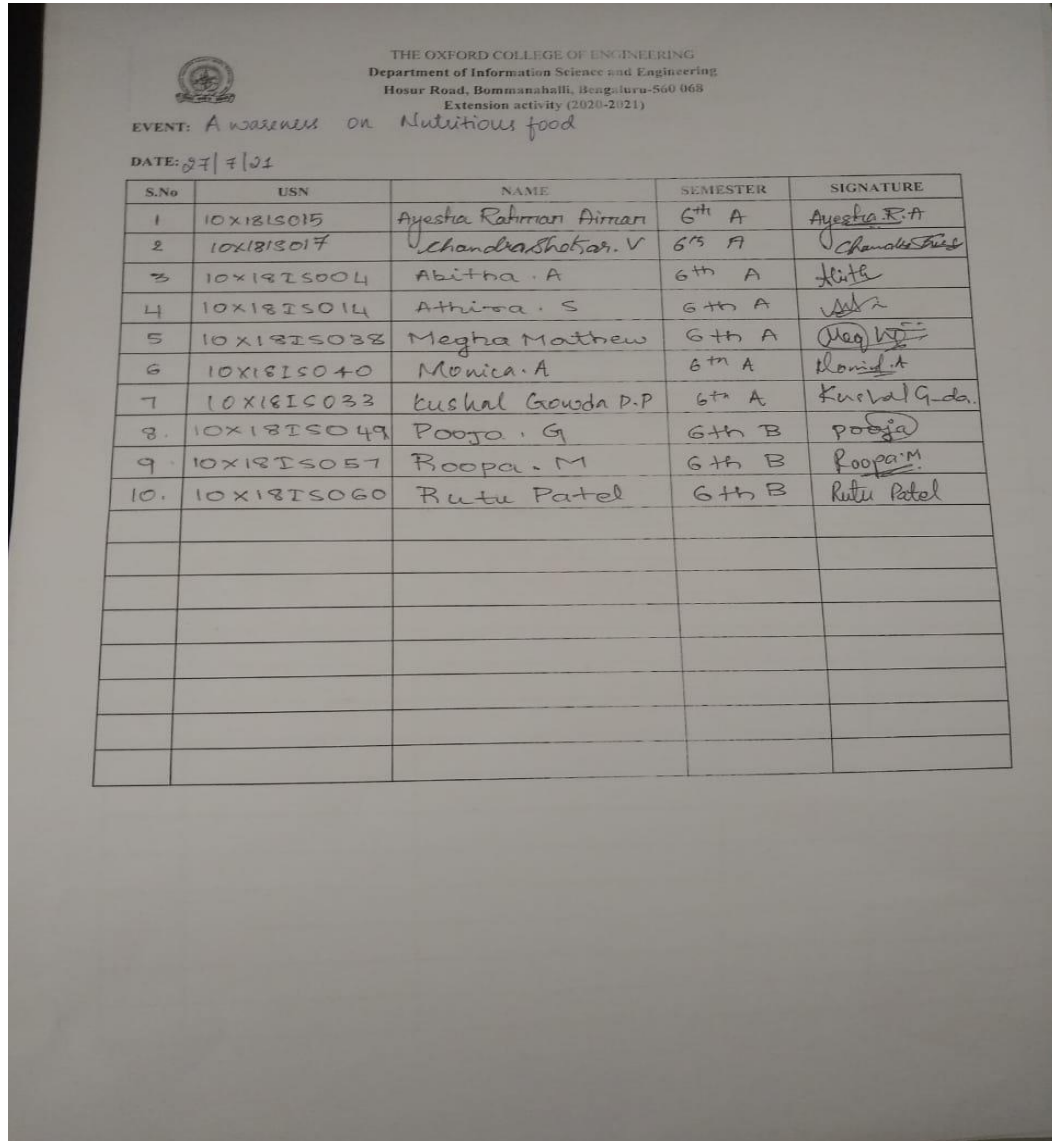 THE OXFORD COLLEGE OF ENGINEERING
Department of Information Science and Engineering
Hosur Road, Bommanahalli, Bengaluru-560 068
Extension activity (2020-2021)
EVENT: Awareness on Nutritious food
DATE: 27/7/21
S.No USN NAME SEMESTER SIGNATURE
1 1OX18IS015 Ayesha Rahman Aiman 6th A Ayesha.R.A
2 1OX18IS017 Chandrashekar. V 6th A
3 1OX18IS004 Abitha . A 6th A
4 1OX18IS014 Athira . S 6th A
5 1OX18IS038 Megha Mathew 6th A
6 1OX18IS040 Monica. A 6th A Monica.A
7 1OX18IS033 Kushal Gowda D.P 6th A
8. 1OX18IS049 Pooja . G 6th B Pooja
9. 1OX18IS057 Roopa . M 6th B Roopa.M
10. 1OX18IS060 Rutu Patel 6th B Rutu Patel